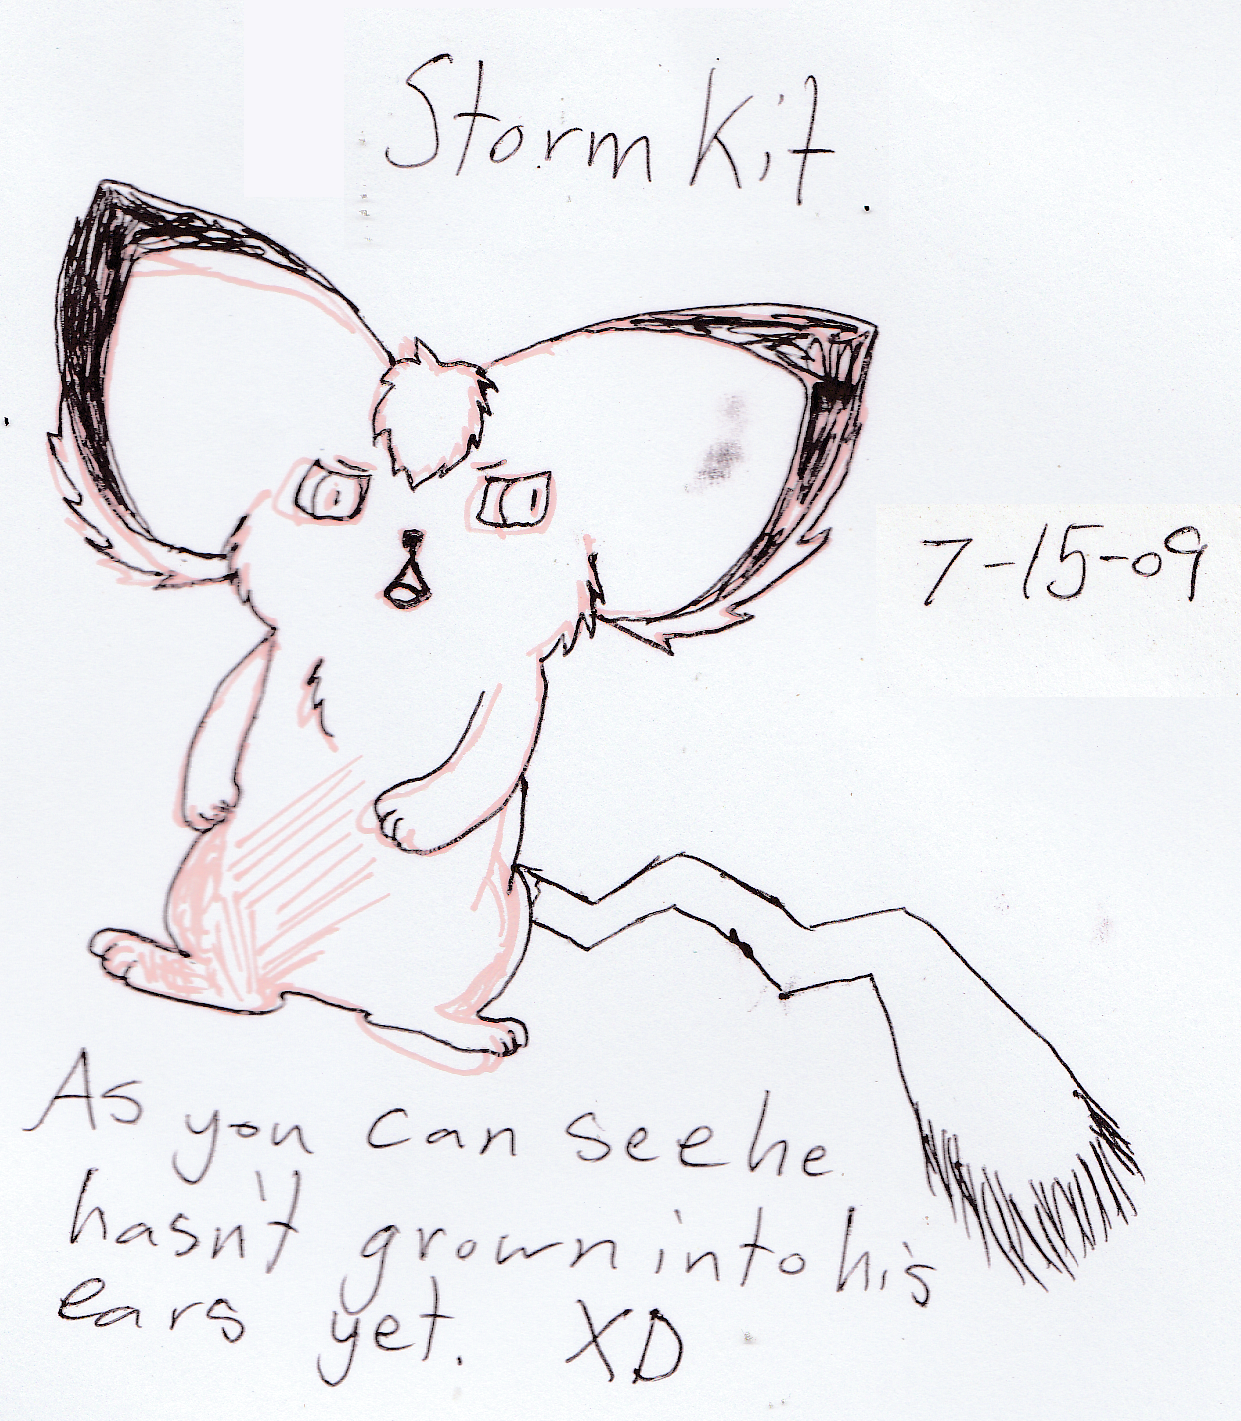 Storm Kit
7-15-09
As you can see he
hasn't grown into his
ears yet. XD